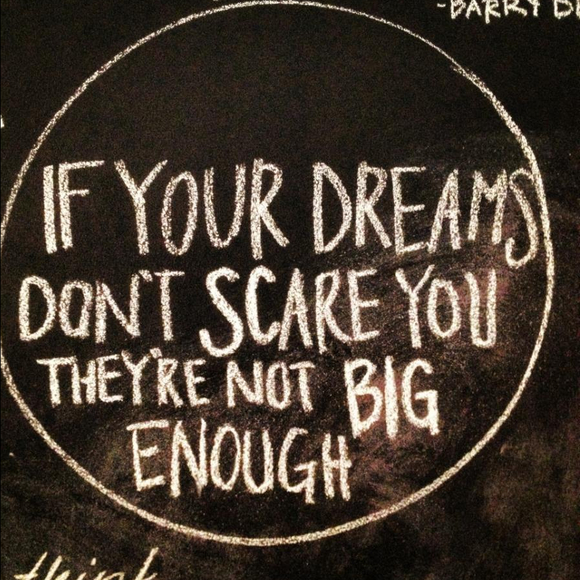 -BARRY
IF YOUR DREAMS
DON'T SCARE YOU
THEY'RE NOT BIG
ENOUGH
think